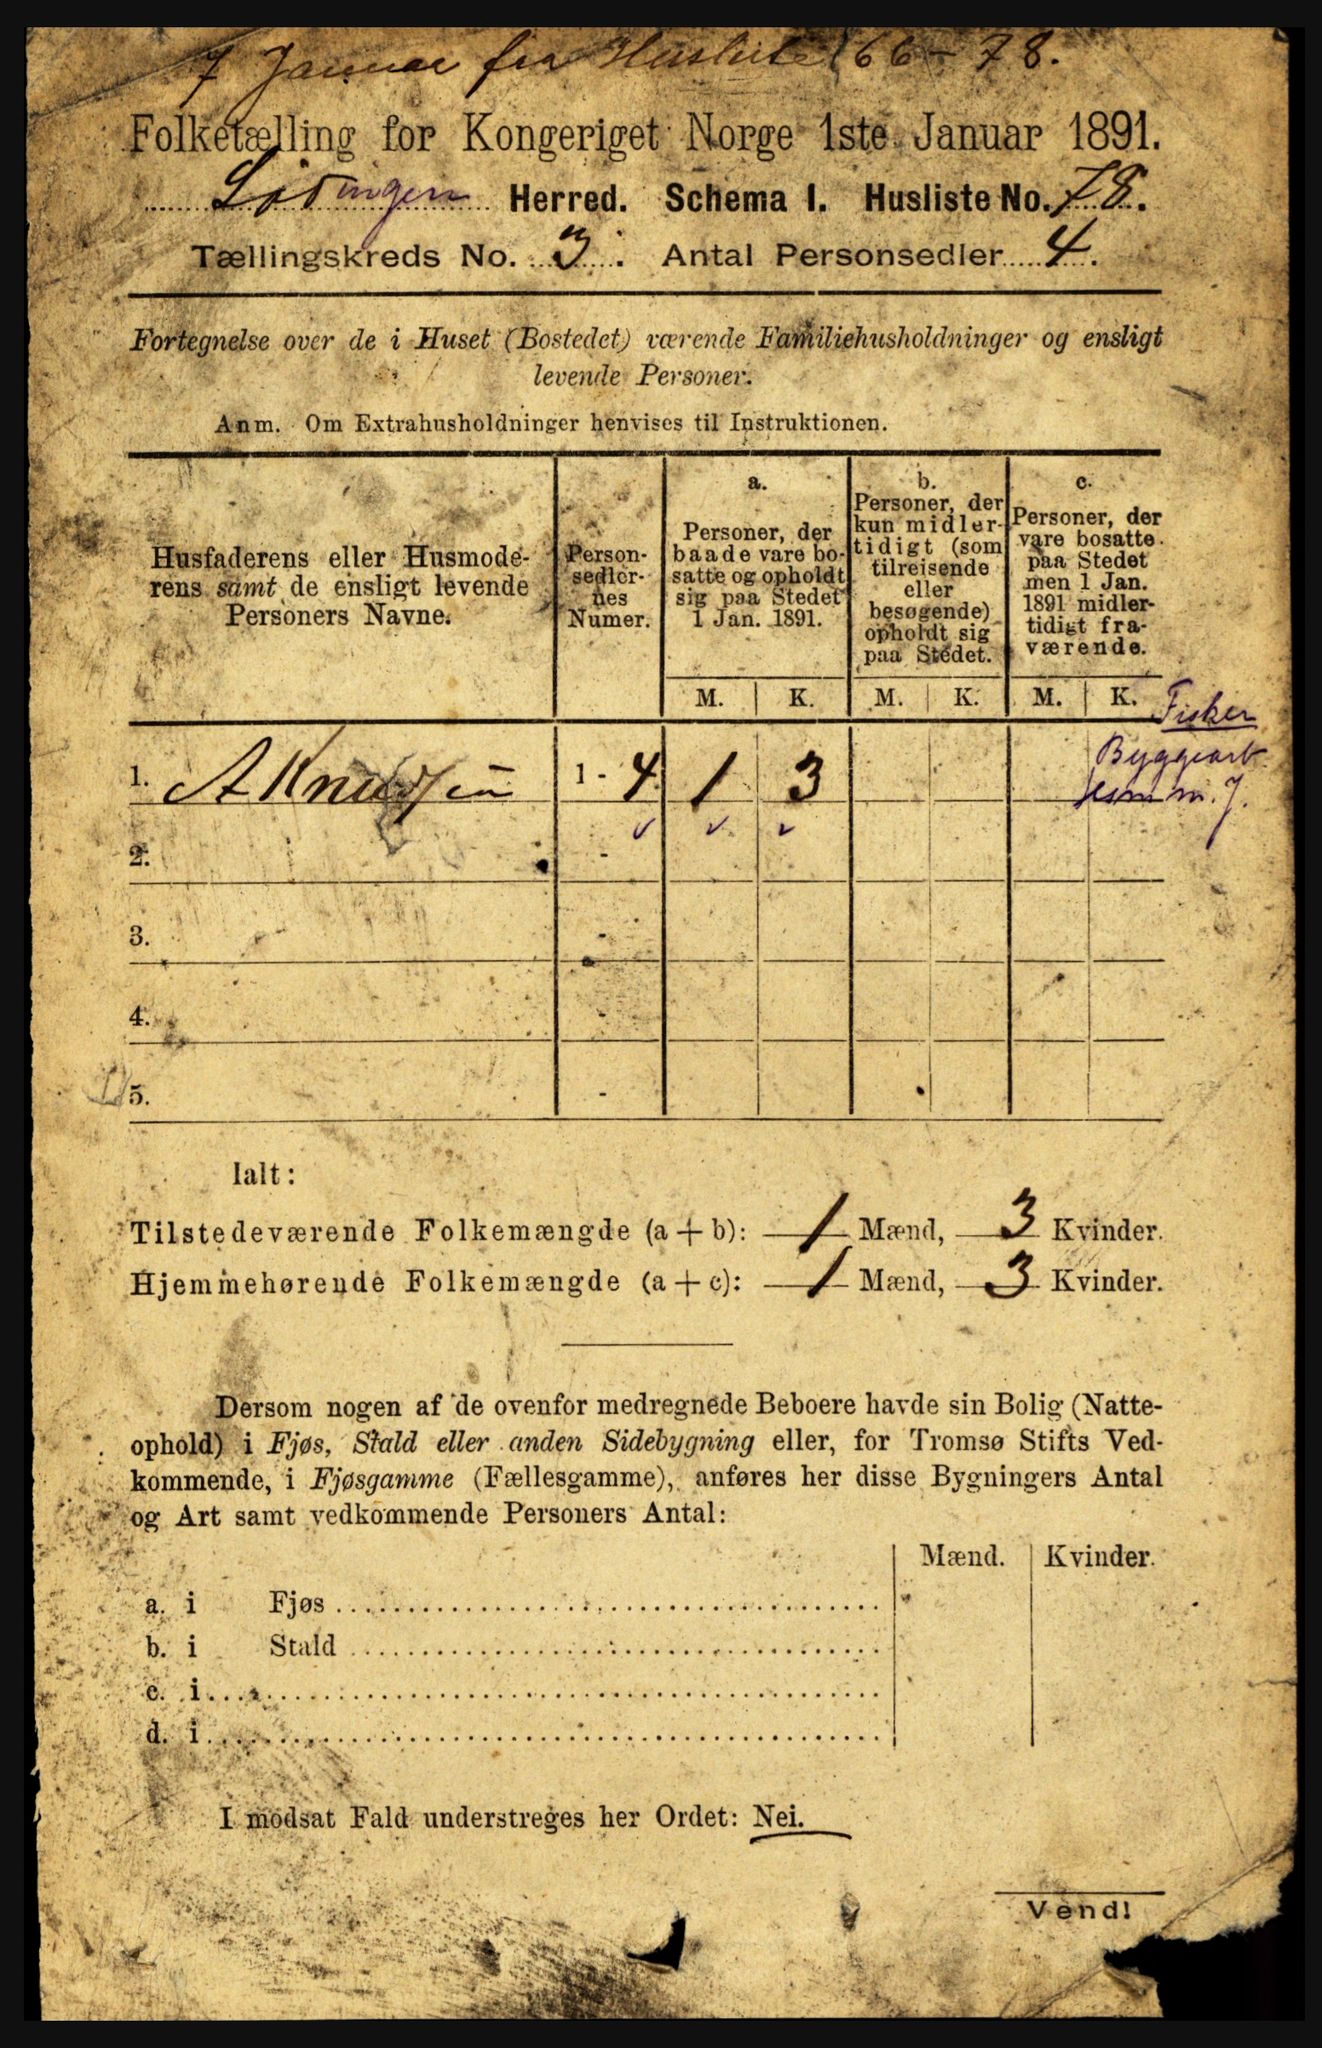 7 Januar fra Husliste 66-78.
Folketælling for Kongeriget Norge 1ste Januar 1891.
Lødingen Herred. Schema I. Husliste No. 78.
Tællingskreds No. 3. Antal Personsedler 4.
Fortegnelse over de i Huset (Bostedet) værende Familiehusholdninger og ensligt
levende Personer.
Anm. Om Extrahusholdninger henvises til Instruktionen.
Husfaderens eller Husmode-
rens samt de ensligt levende
Personers Navne.
Person-
sedler-
nes
Numer.
a.
Personer, der
baade vare bo-
satte og opholdt
sig paa Stedet
1 Jan. 1891.
b.
Personer, der
kun midler-
tidigt (som
tilreisende
eller
besøgende)
opholdt sig
paa Stedet.
c.
Personer, der
vare bosatte
paa Stedet
men 1 Jan.
1891 midler-
tidigt fra-
værende.
M. K. M. K. M. K.
Fisker
Byggearb
m. J.
1. A Knudsen 1 - 4 1 3
2. -
3. -
4. -
5. -
Ialt:
Tilstedeværende Folkemængde (a + b): 1 Mænd, 3 Kvinder.
Hjemmehørende Folkemængde (a + c): 1 Mænd, 3 Kvinder.
Dersom nogen af de ovenfor medregnede Beboere havde sin Bolig (Natte-
ophold) i Fjøs, Stald eller anden Sidebygning eller, for Tromsø Stifts Ved-
kommende, i Fjøsgamme (Fællesgamme), anføres her disse Bygningers Antal
og Art samt vedkommende Personers Antal:
Mænd. Kvinder.
a. i Fjøs
b. i Stald
c. i
d. i
I modsat Fald understreges her Ordet: Nei.
Vend!